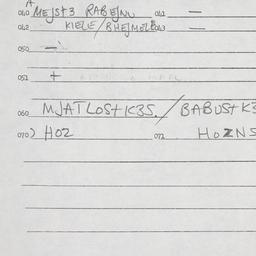 A
040 MEJST3 RABEJNU 041 —
042 KIELE/BHEJMELE 043 —
050 —
051 +
060 MJATLOST K3S./BABUST K3
070) HOZ 072 HOZNS